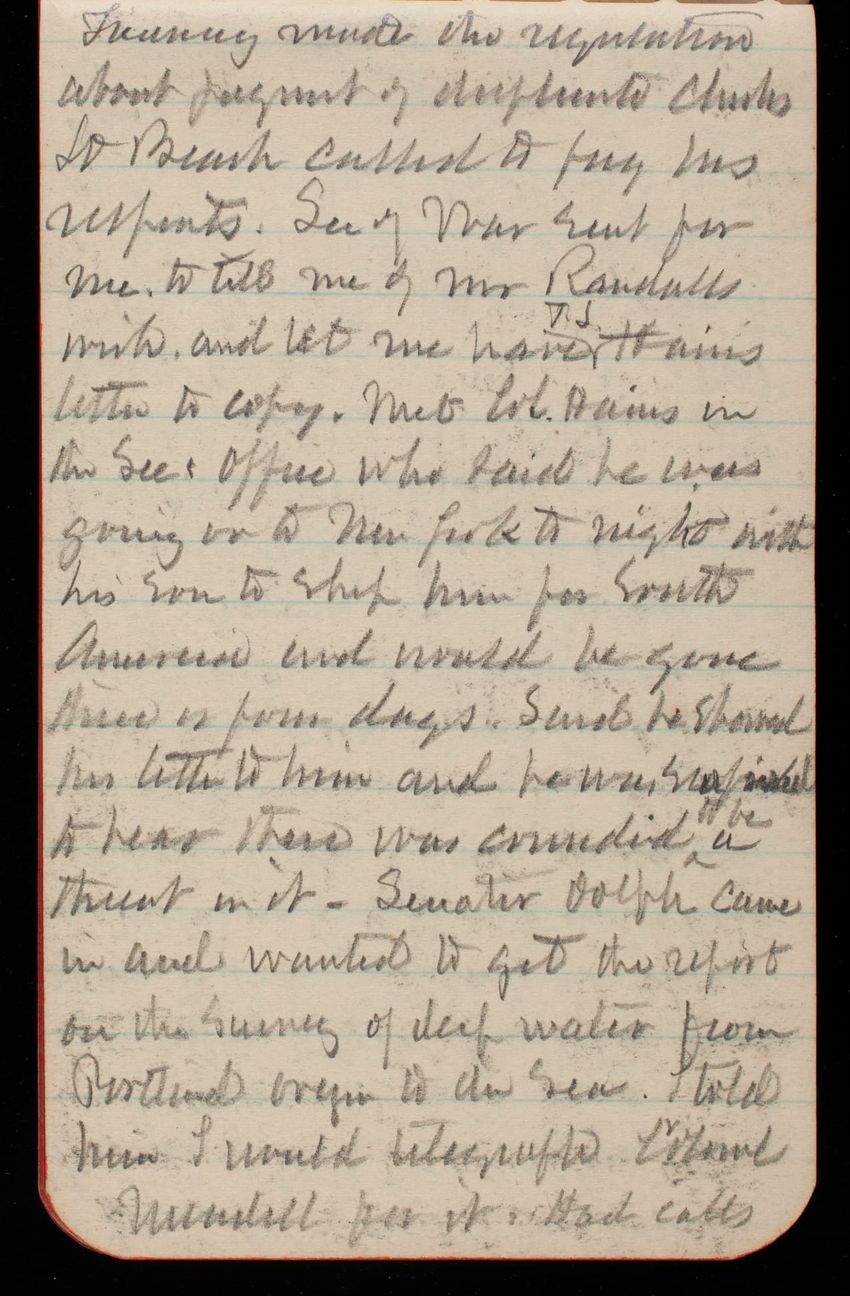 Treasury made the regulation
about payment of duplicate checks
Lt Beach called to pay his
respects. Sec of War sent for
me. to tell me of Mr Randalls
wish. and let me have T.J. Hains
letter to copy. Met Col. Hains in
the Sec's Office who said he was
going on to New York to night with
his son to ship him for South
America and would be gone
three or four days. Said he showed
his letter to him and he was surprised
to hear there was considered to be a
threat in it - Senator Dolph came
in and wanted to get the report
on the Survey of deep water from
Portland Oregon to the Sea. I told
him I would telegraph Colonel
Mendell for it. Had calls